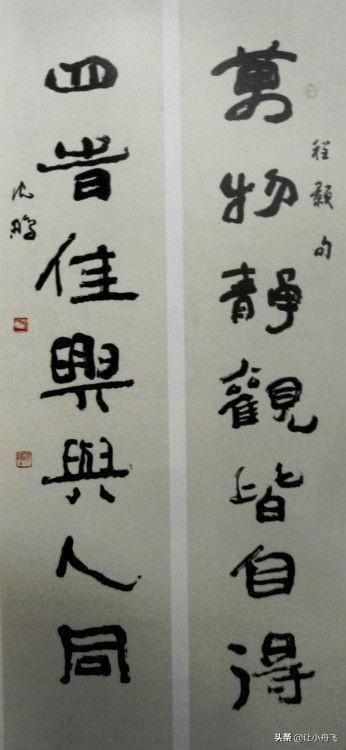 萬物静觀皆自得
程顥句
四旹佳興與人同
沈鵬
头条 @让小舟飞